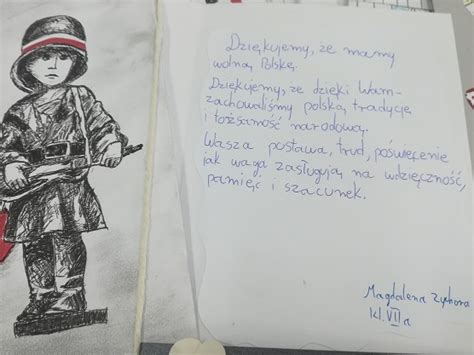 Dziękujemy, że mamy
wolną Polskę.
Dziękujemy, że dzięki Wam-
zachowaliśmy polską tradycję
i tożsamość narodową.
Wasza postawa, trud, poświęcenie
jak waga zasługują na wdzięczność,
pamięć i szacunek.
Magdalena Zychora
kl. VII a